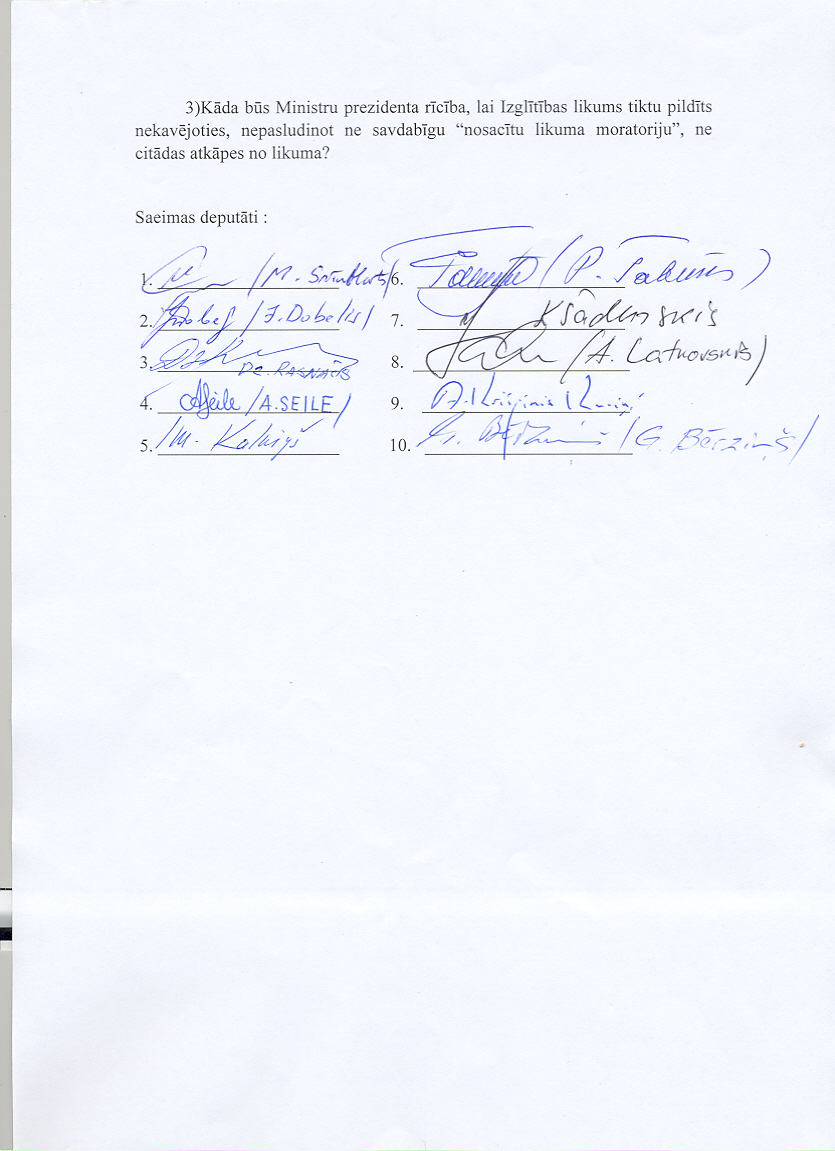 3)Kāda būs Ministru prezidenta rīcība, lai Izglītības likums tiktu pildīts
nekavējoties, nepasludinot ne savdabīgu “nosacītu likuma moratoriju”, ne
citādas atkāpes no likuma?
Saeimas deputāti :
1. /M.
2. /J. Dobelis/
3. Dz. RAGNĀŠS
4. /A. SEILE/
5. /M. Kalniņš
6. (P. Tabūns)
7. K Šadurskis
8. (A. Latkovskis)
9.
10. /G. Bērziņš/